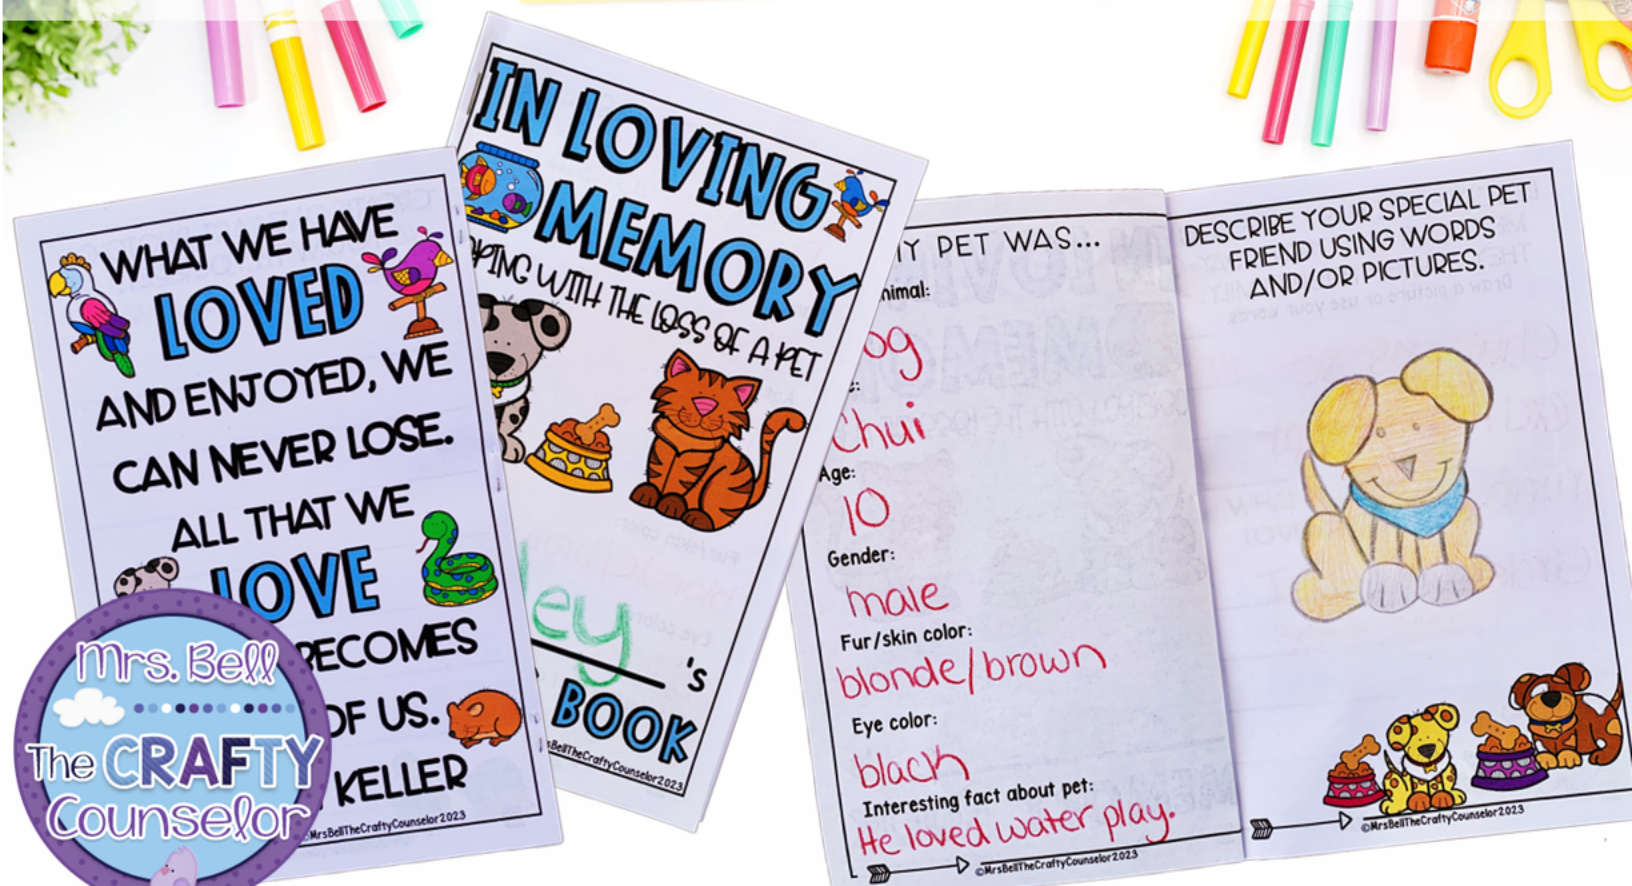 WHAT WE HAVE
LOVED
AND ENJOYED, WE
CAN NEVER LOSE.
ALL THAT WE
LOVE
BECOMES
OF US.
KELLER
©MrsBellTheCraftyCounselor2023
Mrs. Bell
The CRAFTY
Counselor
IN LOVING
MEMORY
OPING WITH THE LOSS OF A PET
ley
's
BOOK
rsBellTheCraftyCounselor2023
Y PET WAS...
nimal:
og
e:
Chui
Age:
10
Gender:
male
Fur/skin color:
blonde/brown
Eye color:
black
Interesting fact about pet:
He loved water play.
©MrsBellTheCraftyCounselor2023
DESCRIBE YOUR SPECIAL PET
FRIEND USING WORDS
AND/OR PICTURES.
©MrsBellTheCraftyCounselor2023